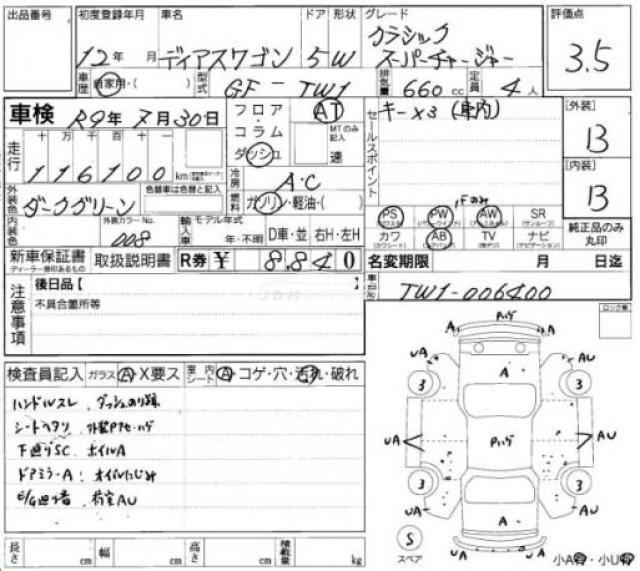 出品番号 初度登録年月 車名 ドア 形状 グレード 評価点
12年 月 ディアスワゴン 5W クラシック スーパーチャージャー 3.5
車歴 自家用・( ) 型式 GF-TW1 排気量 660cc 定員 4人
車検 R9年7月30日 フロア コラム ダッシュ AT MTのみ記入 速
セールスポイント キー×3(車内)
[外装] B
[内装] B
走行 十 万 千 百 十 一
116100km
冷房 A・C
外装色 ダークグリーン 色替車は色替と記入 燃料 ガソリン・軽油・( )
内装色 外装カラーNo. 008 輸入車 モデル年式 年・不明 D車・並 右H・左H
Fのみ
PS PW AW SR(サンルーフ)
カワ(カワシート) AB(エアバッグ) TV ナビ(ナビゲーション)
純正品のみ丸印
新車保証書 ディーラー捺印あるもの 取扱説明書 R券 ¥ 8,840 名変期限 月 日迄
車台No. TW1-006400
注意事項 後日品【
不具合箇所等
ロック車
検査員記入 ガラス A・X要ス 室内シート A・コゲ・穴・汚れ・破れ
ハンドルスレ ダッシュのり跡
シートヘタリ 外装Pアセ・ハゲ
下廻りSC ホイルA
ドアミラーA: オイルにじみ
E/G廻り音 荷室AU
Pハゲ
A A
UA A AU
3 3
UA Pハゲ AU
3 3
A
S スペア UA A UA
小A有・小U有
長さ cm 幅 cm 高さ cm 積載量 kg